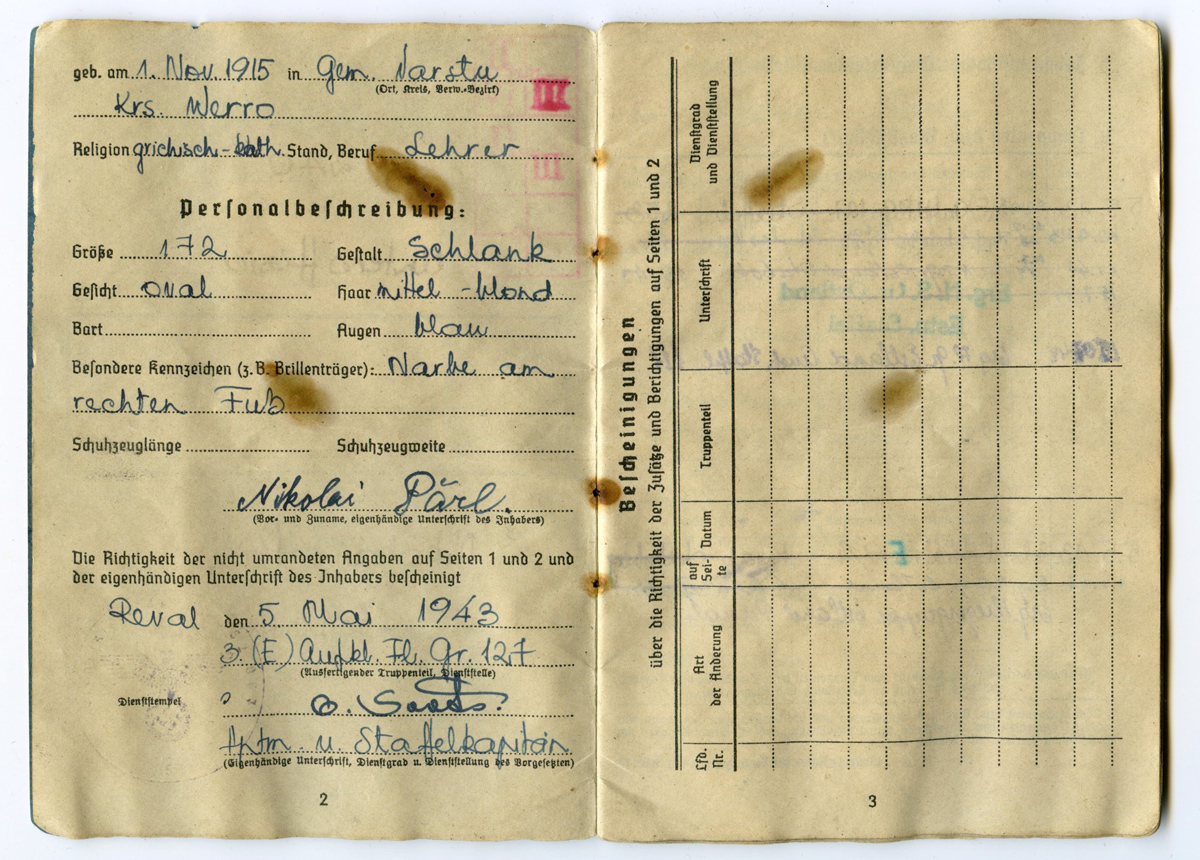 geb. am 1. Nov. 1915 in Gem. Varstu
(Ort, Kreis, Verw.-Bezirk)
Krs. Werro
Religion grichisch-kath. Stand, Beruf Lehrer
Personalbeschreibung:
Größe 172 Gestalt Schlank
Gesicht oval Haar mittel-blond
Bart Augen blau
Besondere Kennzeichen (z. B. Brillenträger): Narbe am
rechten Fuß
Schuhzeuglänge Schuhzeugweite
Nikolai Pärl.
(Vor- und Zuname, eigenhändige Unterschrift des Inhabers)
Die Richtigkeit der nicht umrandeten Angaben auf Seiten 1 und 2 und
der eigenhändigen Unterschrift des Inhabers bescheinigt
Reval den 5 Mai 1943
3. (E) Aufkl. Fl. Gr. 127
(Ausfertigender Truppenteil, Dienststelle)
Dienststempel
Hptm. u. Staffelkapitän
(Eigenhändige Unterschrift, Dienstgrad u. Dienststellung des Vorgesetzten)
2
Bescheinigungen
über die Richtigkeit der Zusätze und Berichtigungen auf Seiten 1 und 2
Lfd. Nr.
Art der Änderung
auf Sei-te
Datum
Truppenteil
Unterschrift
Dienstgrad und Dienststellung
3